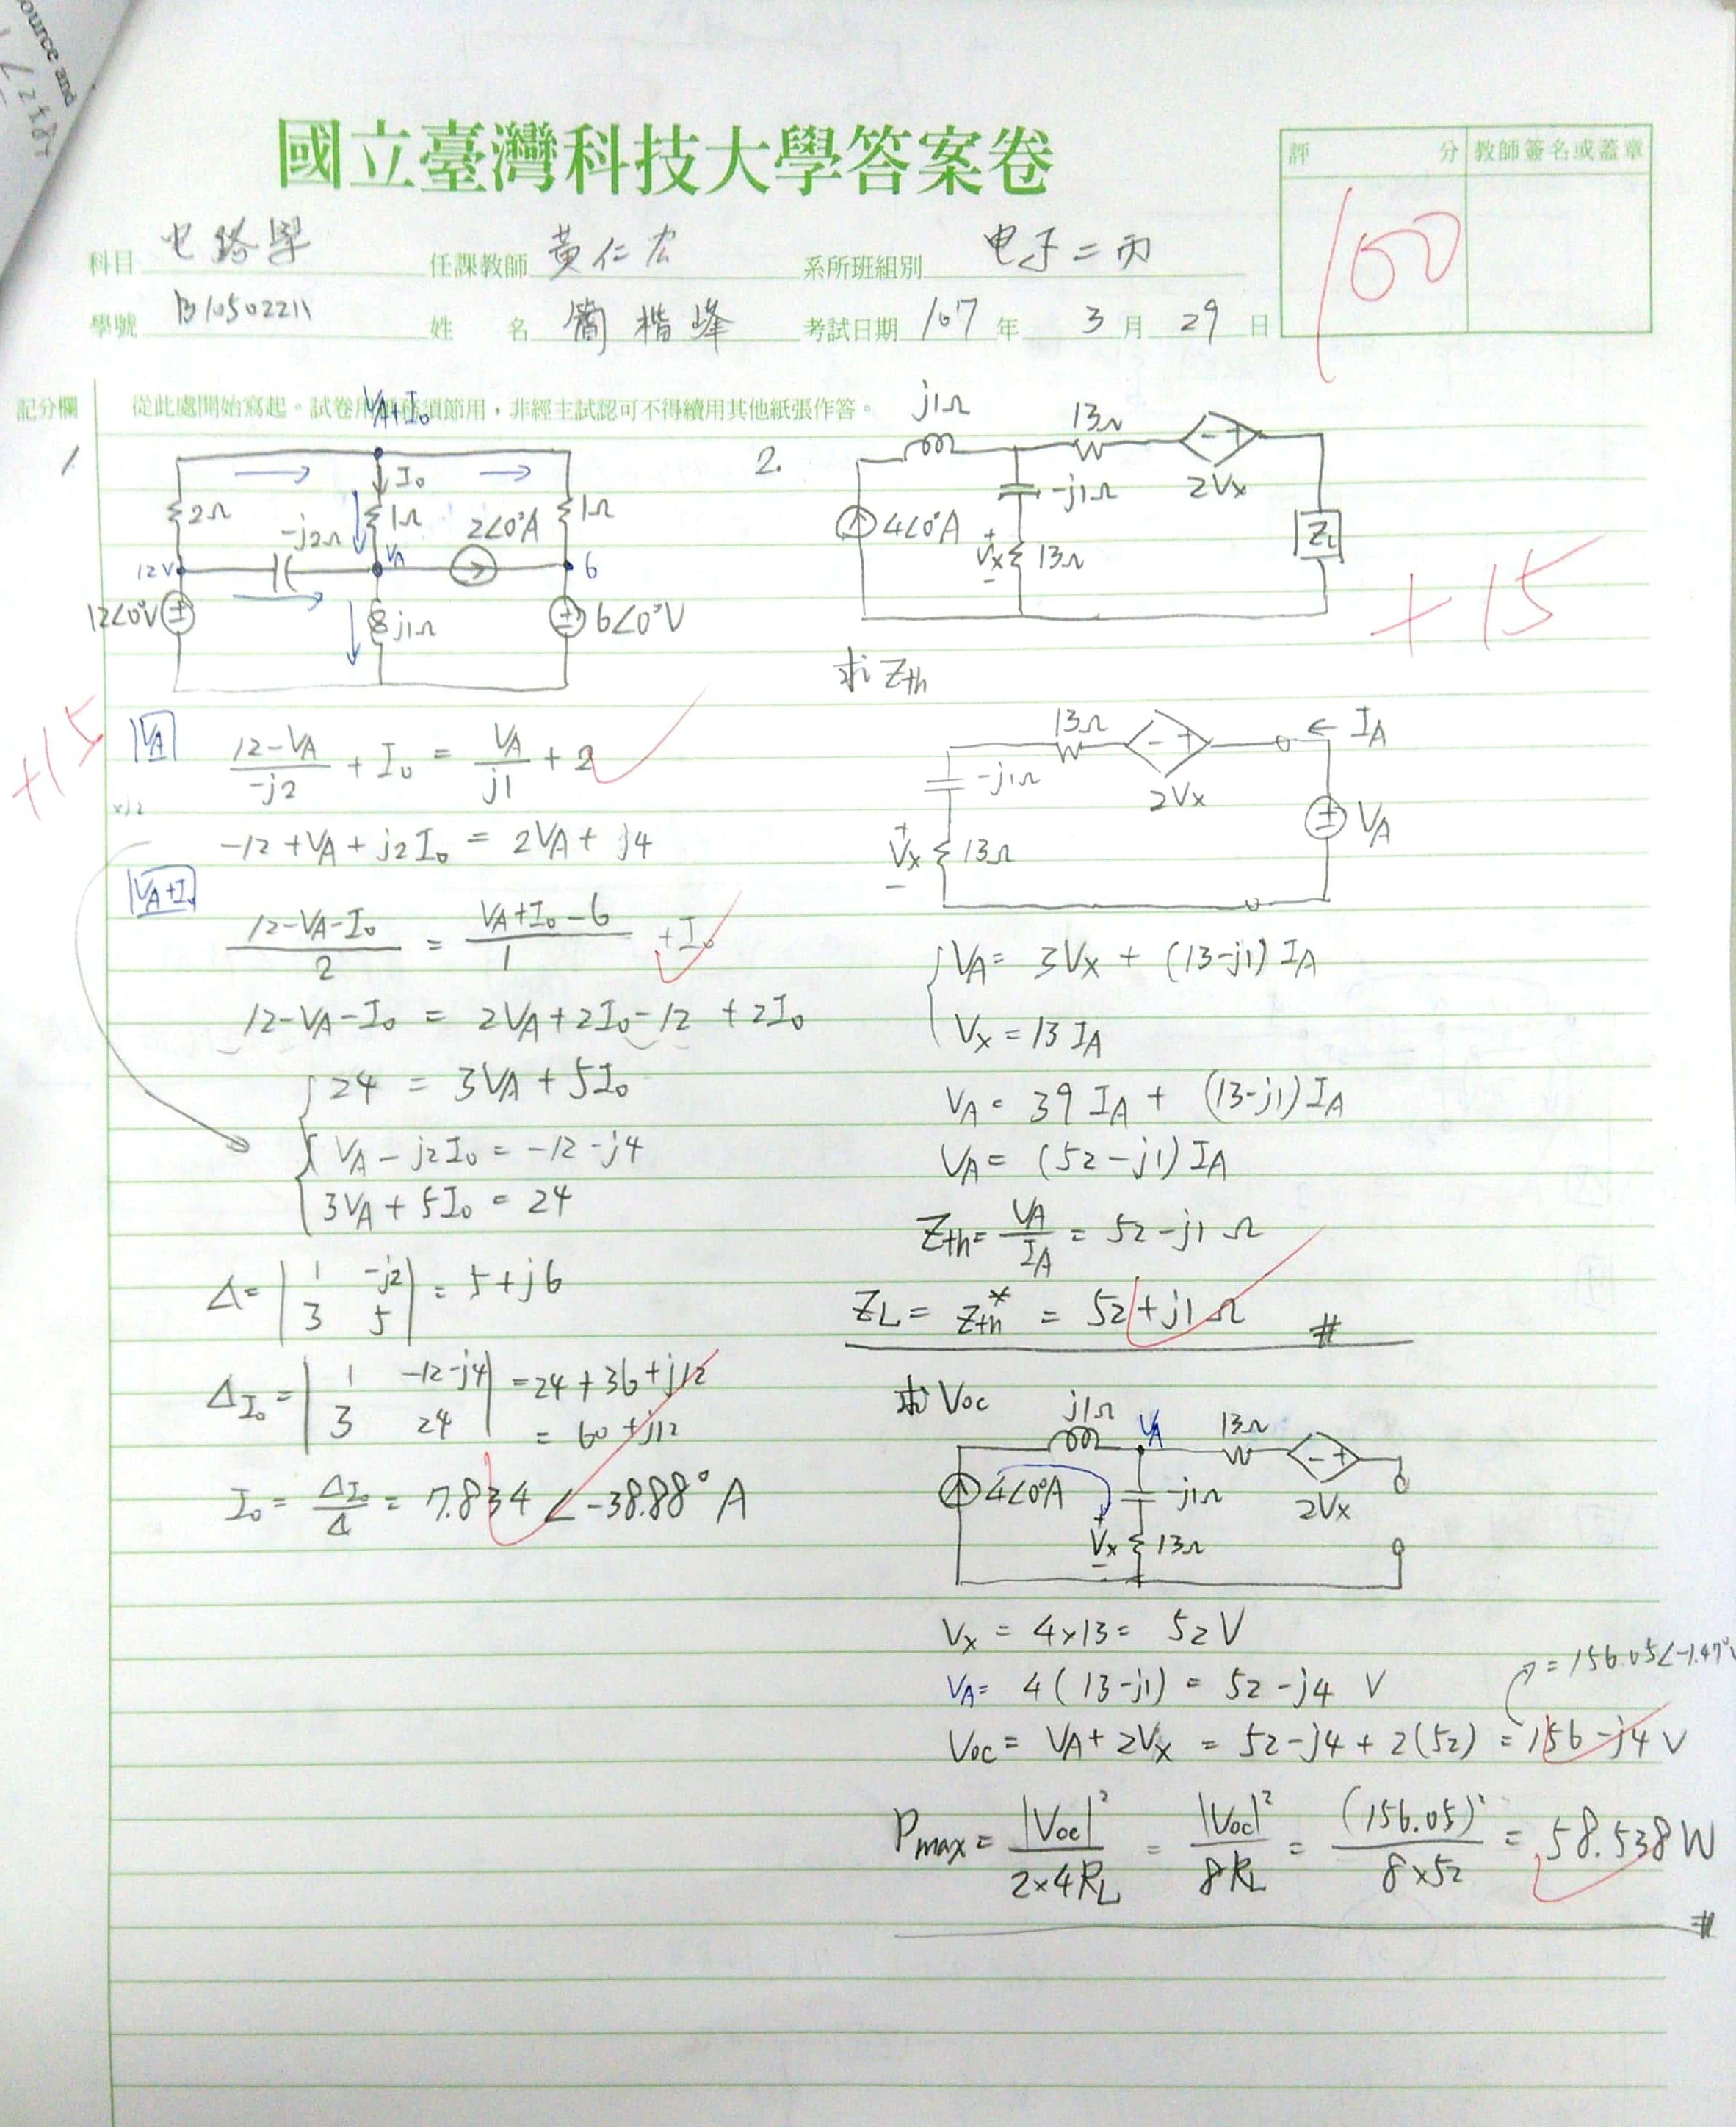 ource and
國立臺灣科技大學答案卷
評 分 教師簽名或蓋章
100
科目 电路學 任課教師 黃仁宏 系所班組別 电子二丙
學號 B10502211 姓 名 簡楷峰 考試日期 107 年 3 月 29 日
記分欄 從此處開始寫起。試卷用紙務須節用,非經主試認可不得續用其他紙張作答。
1.
VA+I₀
I₀
2Ω
-j2Ω
1Ω
2∠0°A
1Ω
12V
VA
6
12∠0°V
j1Ω
6∠0°V
+15
VA
(12-VA)/(-j2) + I₀ = VA/j1 + 2
×j2
-12+VA+j2I₀ = 2VA+j4
VA+I₀
(12-VA-I₀)/2 = (VA+I₀-6)/1 + I₀
12-VA-I₀ = 2VA+2I₀-12+2I₀
24 = 3VA+5I₀
VA-j2I₀ = -12-j4
3VA+5I₀ = 24
Δ = |1 -j2| = 5+j6
|3 5|
ΔI₀ = |1 -12-j4| = 24+36+j12
|3 24| = 60+j12
I₀ = ΔI₀/Δ = 7.834∠-38.88° A
2.
j1Ω
13Ω
-j1Ω
2Vx
4∠0°A
+ Vx - 13Ω
ZL
+15
求 Zth
13Ω
IA
-j1Ω
2Vx
VA
+ Vx - 13Ω
VA = 3Vx + (13-j1)IA
Vx = 13IA
VA = 39IA + (13-j1)IA
VA = (52-j1)IA
Zth = VA/IA = 52-j1Ω
ZL = Zth* = 52+j1Ω #
求 Voc
j1Ω
VA
13Ω
4∠0°A
-j1Ω
2Vx
+ Vx - 13Ω
Vx = 4×13 = 52V
= 156.05∠-1.47°V
VA = 4(13-j1) = 52-j4 V
Voc = VA+2Vx = 52-j4+2(52) = 156-j4 V
Pmax = |Voc|²/(2×4RL) = |Voc|²/(8RL) = (156.05)²/(8×52) = 58.538W
#